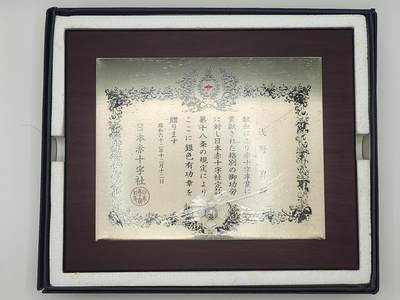 献血により赤十字事業に
貢献された格別の御功労
に対し日本赤十字社定款
第十八条の規定により
ここに銀色有功章を
贈ります
昭和六十二年十二月十二日
日本赤十字社